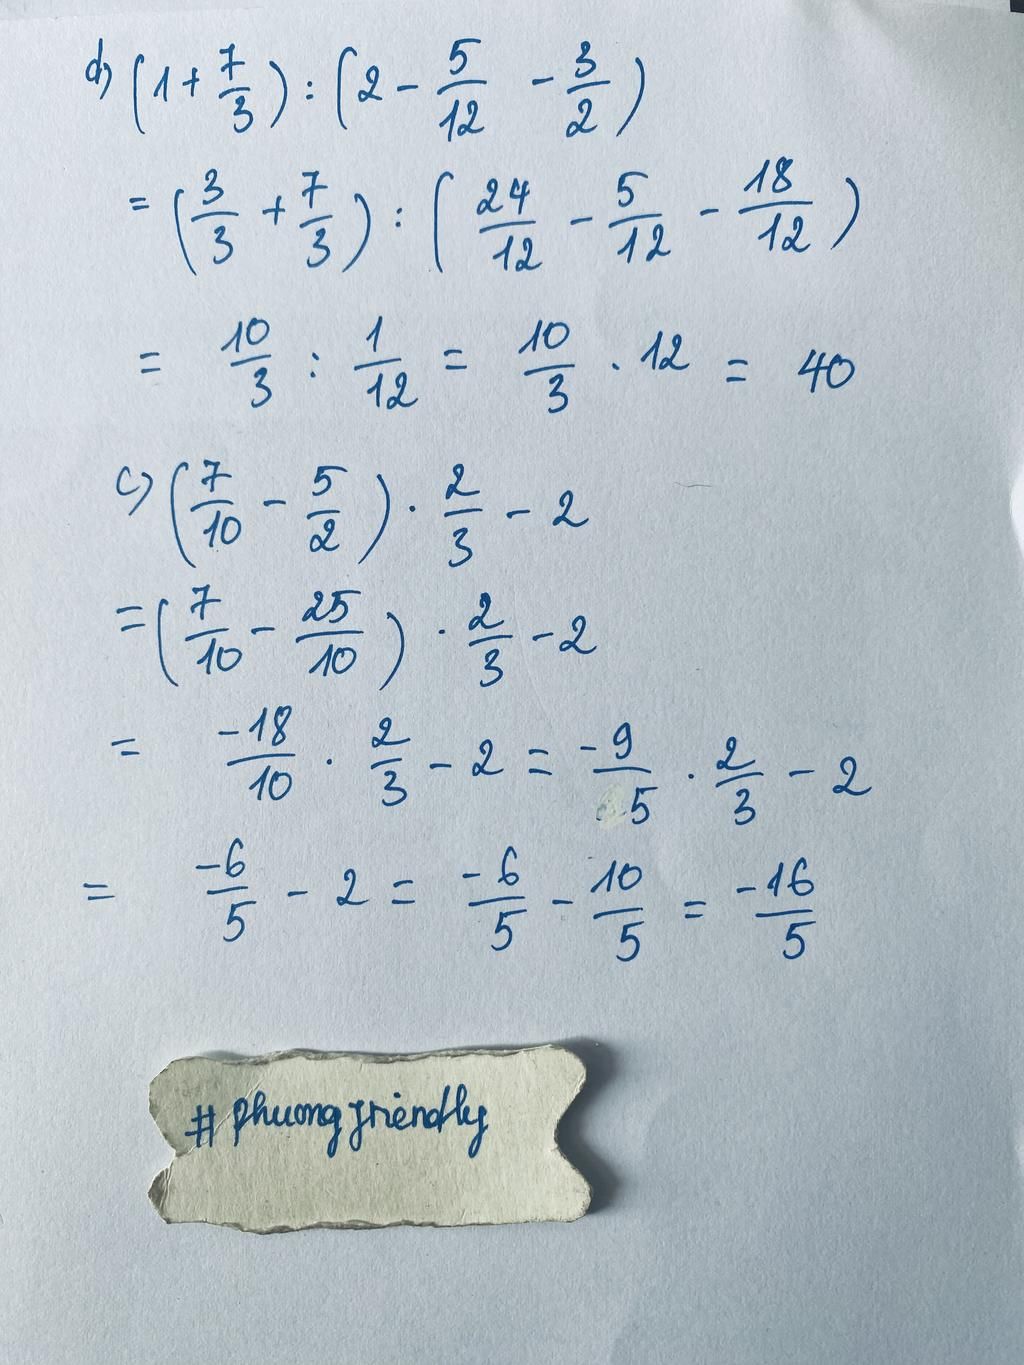 d) (1 + 7/3) : (2 - 5/12 - 3/2)
= (3/3 + 7/3) : (24/12 - 5/12 - 18/12)
= 10/3 : 1/12 = 10/3 . 12 = 40
c) (7/10 - 5/2) . 2/3 - 2
= (7/10 - 25/10) . 2/3 - 2
= -18/10 . 2/3 - 2 = -9/5 . 2/3 - 2
= -6/5 - 2 = -6/5 - 10/5 = -16/5
# phuong friendly